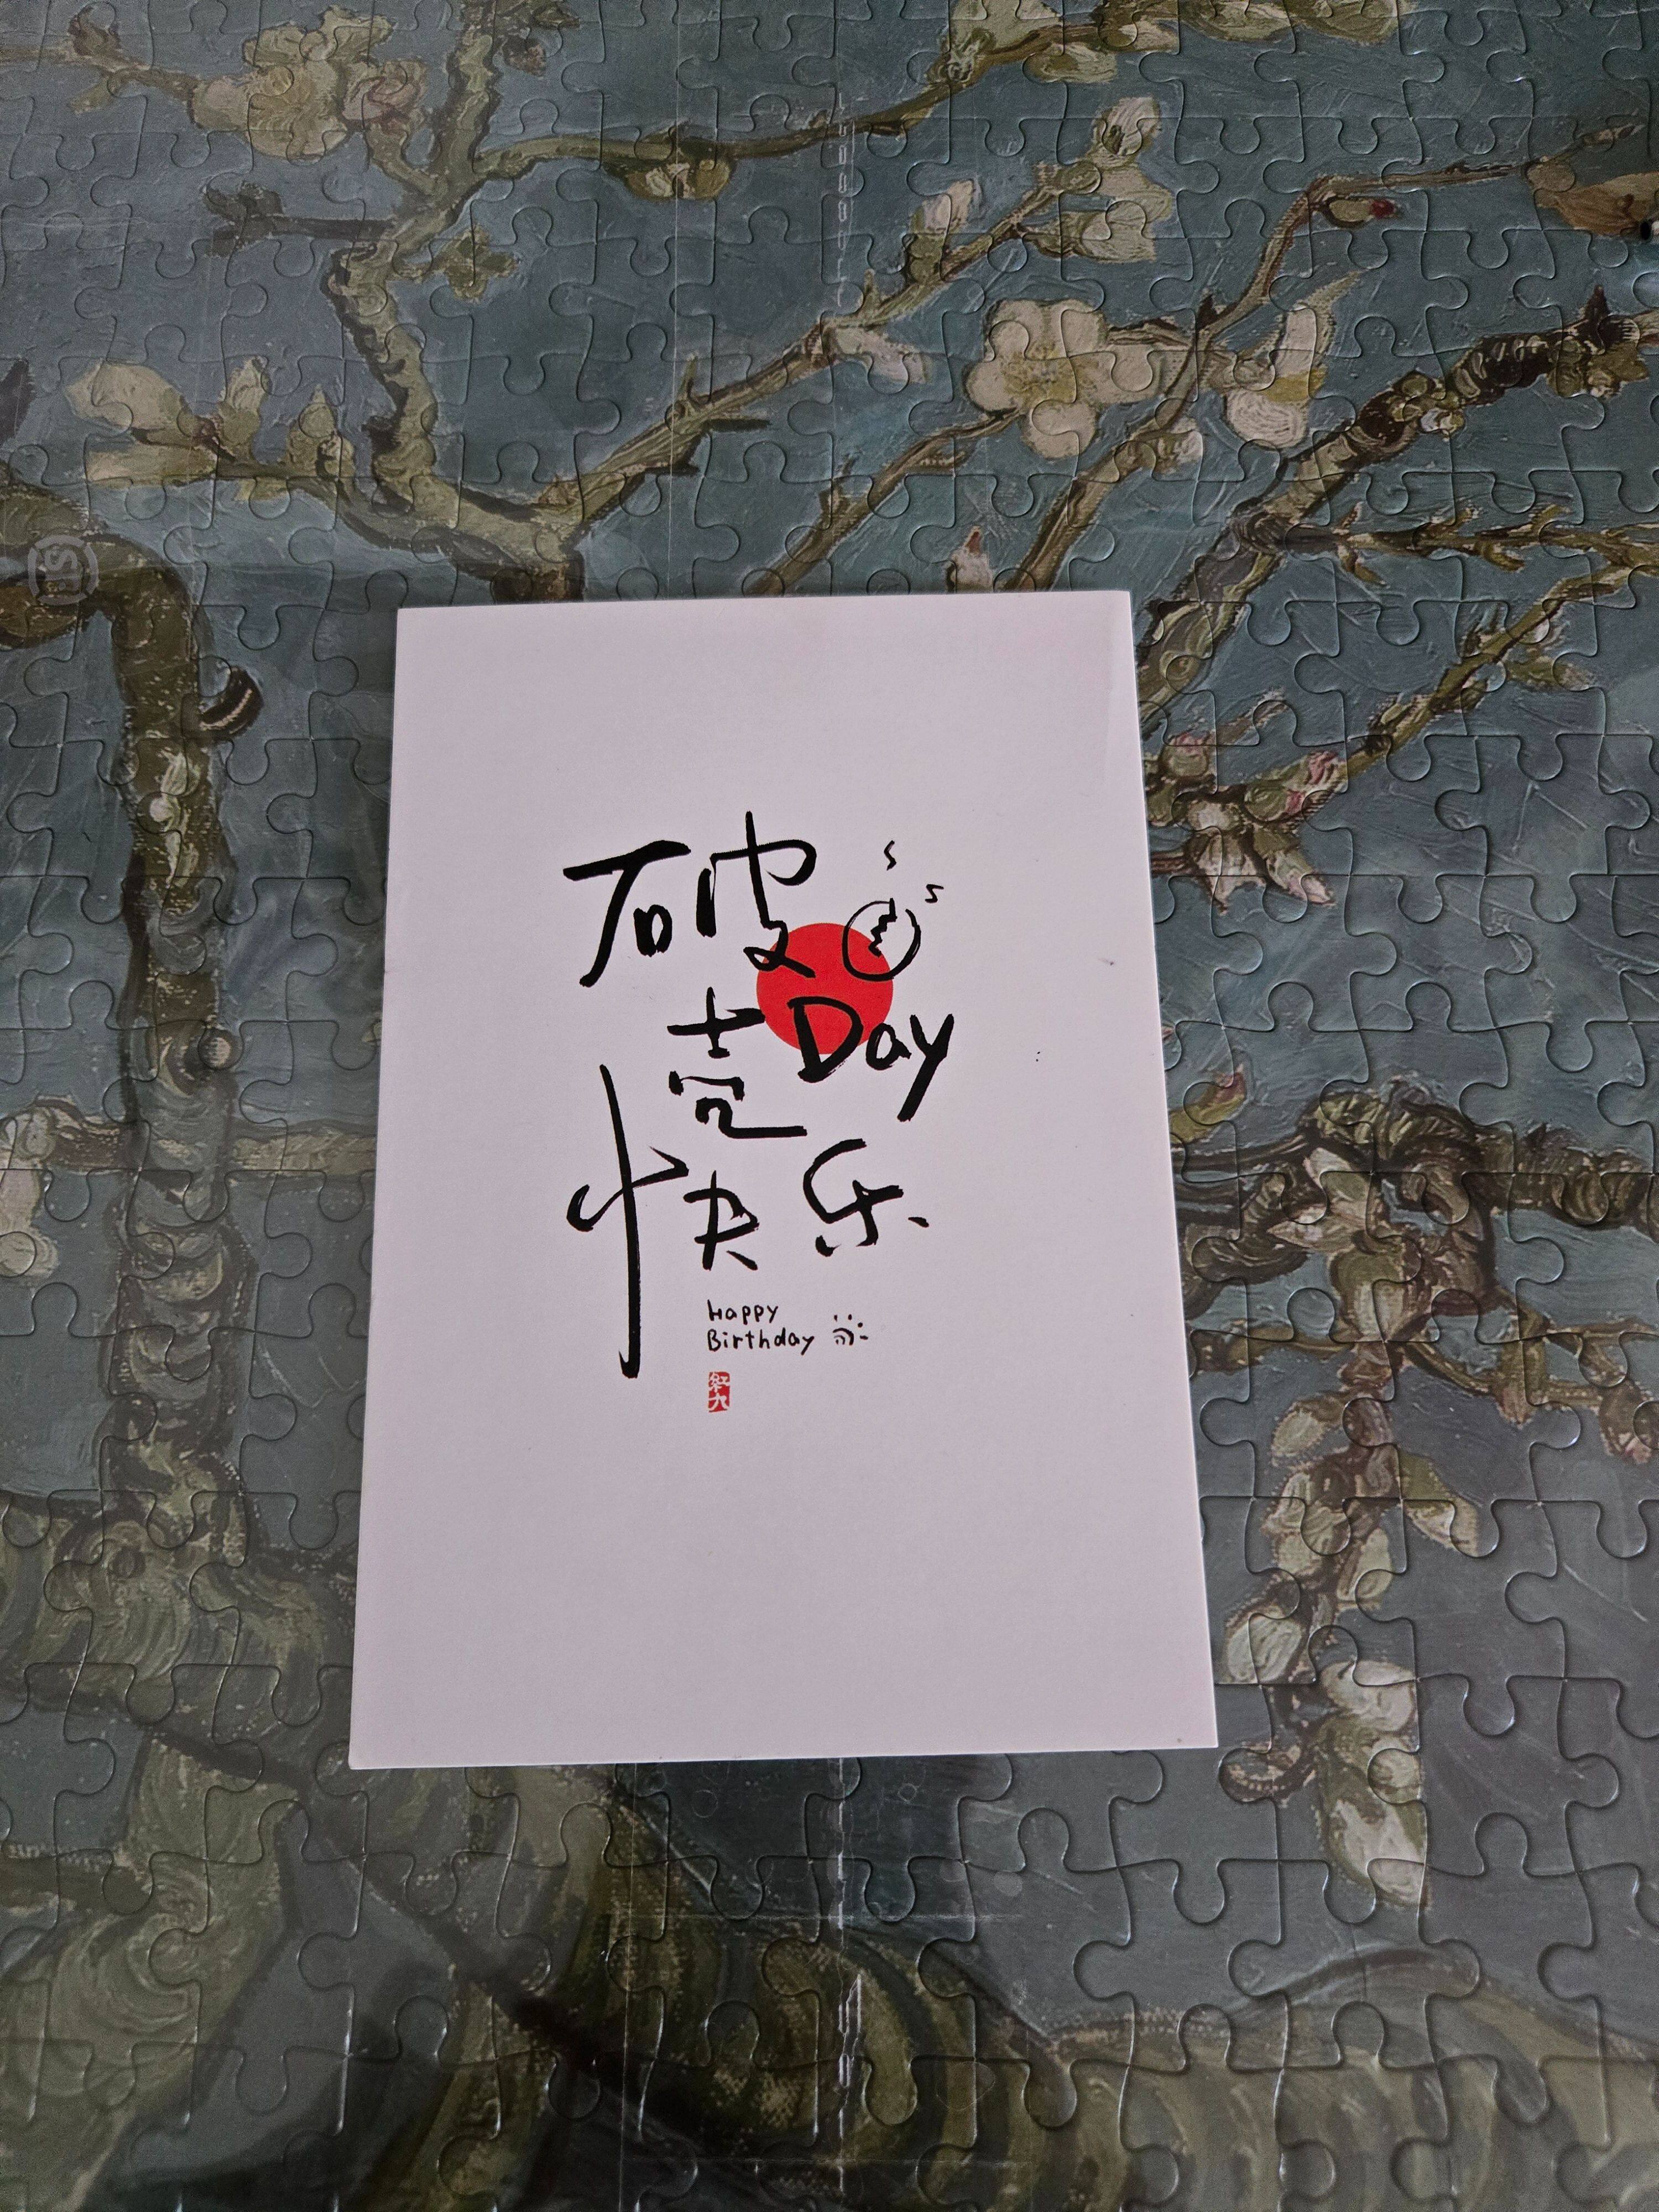 破
壳Day
快乐
Happy
Birthday
红九